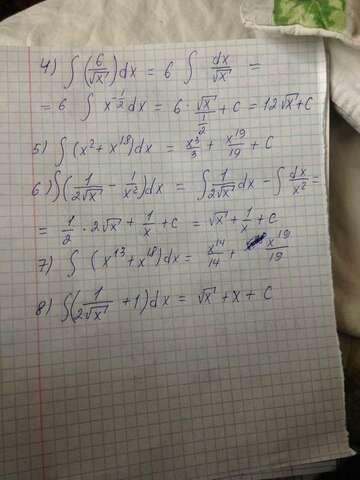 4) ∫ (6/√x) dx = 6 ∫ dx/√x =
= 6 ∫ x^(-1/2) dx = 6 · √x/(1/2) + C = 12√x + C
5) ∫ (x² + x¹⁸) dx = x³/3 + x¹⁹/19 + C
6) ∫ (1/(2√x) - 1/x²) dx = ∫ 1/(2√x) dx - ∫ dx/x² =
= 1/2 · 2√x + 1/x + C = √x + 1/x + C
7) ∫ (x¹³ + x¹⁸) dx = x¹⁴/14 + x¹⁹/19
8) ∫ (1/(2√x) + 1) dx = √x + x + C